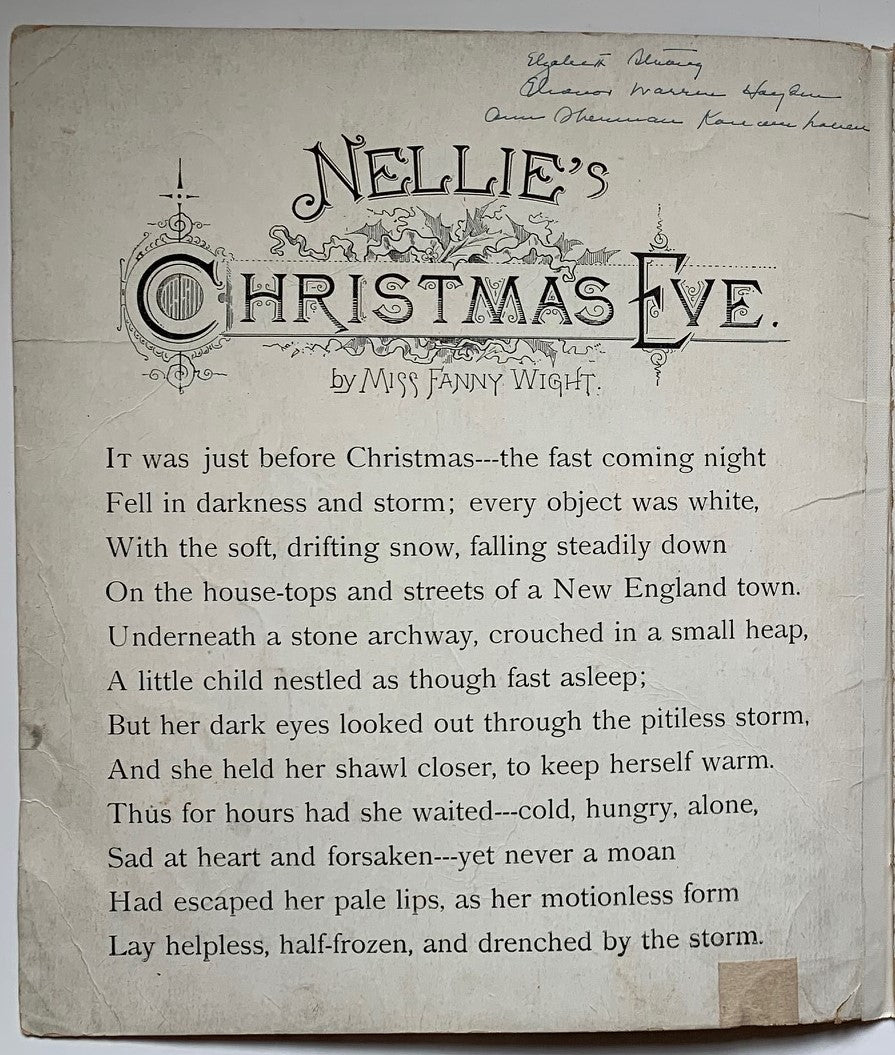 Eleanor Warren Hayden
Ann Sherman
NELLIE'S
CHRISTMAS EVE.
by MISS FANNY WIGHT.
IT was just before Christmas---the fast coming night
Fell in darkness and storm; every object was white,
With the soft, drifting snow, falling steadily down
On the house-tops and streets of a New England town.
Underneath a stone archway, crouched in a small heap,
A little child nestled as though fast asleep;
But her dark eyes looked out through the pitiless storm,
And she held her shawl closer, to keep herself warm.
Thus for hours had she waited---cold, hungry, alone,
Sad at heart and forsaken---yet never a moan
Had escaped her pale lips, as her motionless form
Lay helpless, half-frozen, and drenched by the storm.